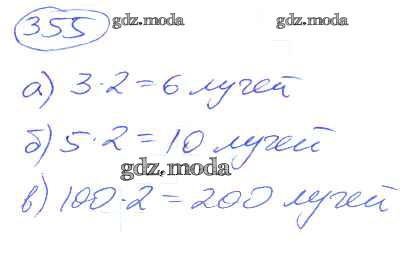 355 gdz.moda gdz.moda
а) 3·2=6 лучей
б) 5·2=10 лучей
gdz.moda
в) 100·2=200 лучей